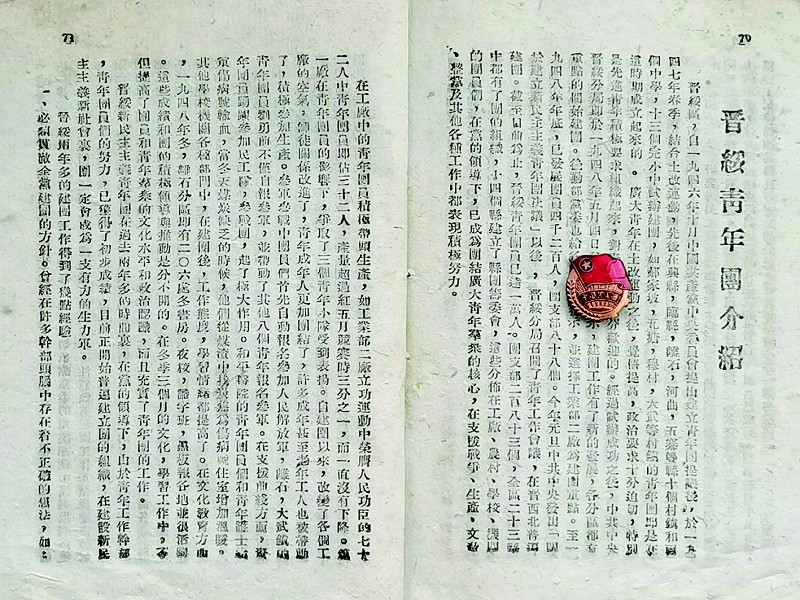 70
晋綏青年團介紹
晉綏區，自一九四六年十月中國共產黨中央委員會提出建立青年團提議後，於一九
四七年春季，結合土改運動，先後在興縣，臨縣，離石，河曲，五寨等縣十個村鎮和兩
個中學，十三個完小中試辦建團，如郝家坡，瓦塘，穆村，大武等村鎮的青年團即是在
這時期成立起來的。廣大青年在土改運動之後，覺悟提高，政治要求十分迫切，特別
是先進青年積極要求組織起來，對歡迎的。經過試辦成功之後，中共中央
晉綏分局即於一九四八年五月四日，建團工作有了新的發展，各分區都有
重點的開始建團。後勤部黨委也給，並選擇工業部二廠為建團重點。至一
九四八年年底，已發展團員四千二百人，團支部八十八個。今年元旦中共中央發出「關
於建立新民主主義青年團決議」以後，晉綏分局召開了青年工作會議，在晉西北普遍
建團。截至目前為止，晉綏青年團員已達一萬人。團支部二百八十三個，全區二十三縣
中都有了團的組織，十四個縣建立了縣團籌委會，這些分佈在工廠、農村、學校、機關
的團員們，在黨的領導下，已成為團結廣大青年羣衆的核心，在支援戰爭、生產、文教
、整黨及其他各種工作中都表現積極努力。
在工廠中的青年團員積極帶頭生產，如工業部二廠立功運動中榮膺人民功臣的七十
二人中青年團員即佔三十二人，產量超過紅五月競賽時三分之一，而一直沒有下降。
一廠在青年團員的影響下，爭取了三個青年小隊受到表揚。自建團以來，改變了各個工
廠的空氣，師徒關係改進了，青年成年人更加團結了，許多成年甚至老年工人也被帶動
了，積極參加生產。參軍參戰中團員們首先自動報名參加人民解放軍。離石，大武鎮的
青年團員劉勇前不僅自報參軍，並帶動了其他八個青年報名參軍。在支援前綫方面，
年團員都踴躍參加民工隊，參戰團，起了極大作用。和平醫院的青年團員們和青年護士給
重傷病號輸血，當冬天煤炭缺乏的時候，他們從煤渣中找煤炭為傷病號住室增加溫暖。
其他學校機關各種部門中，在建團後，工作態度，學習情緒都提高了。在文化敎育方面
，一九四八年冬，離石分區即有二〇六處冬書房。夜校，識字班，黑板報各地並很活躍
。這些成績和團的積極領導與推動是分不開的。在冬季三個月的文化，學習工作中，不
但提高了團員和青年羣衆的文化水平和政治認識，而且充實了青年團的工作。
晉綏新民主主義青年團在過去兩年多的時間裏，在黨的領導下，由於青年工作幹部
，青年團員們的努力，已獲得了初步成績，目前正開始普遍建立團的組織，在建設新民
主主義新社會裏，團一定會成為一支有力的生力軍。
晉綏兩年多的建團工作得到了幾點經驗：
一、必須貫澈全黨建團的方針。曾經在許多幹部頭腦中存在着不正確的想法，如：